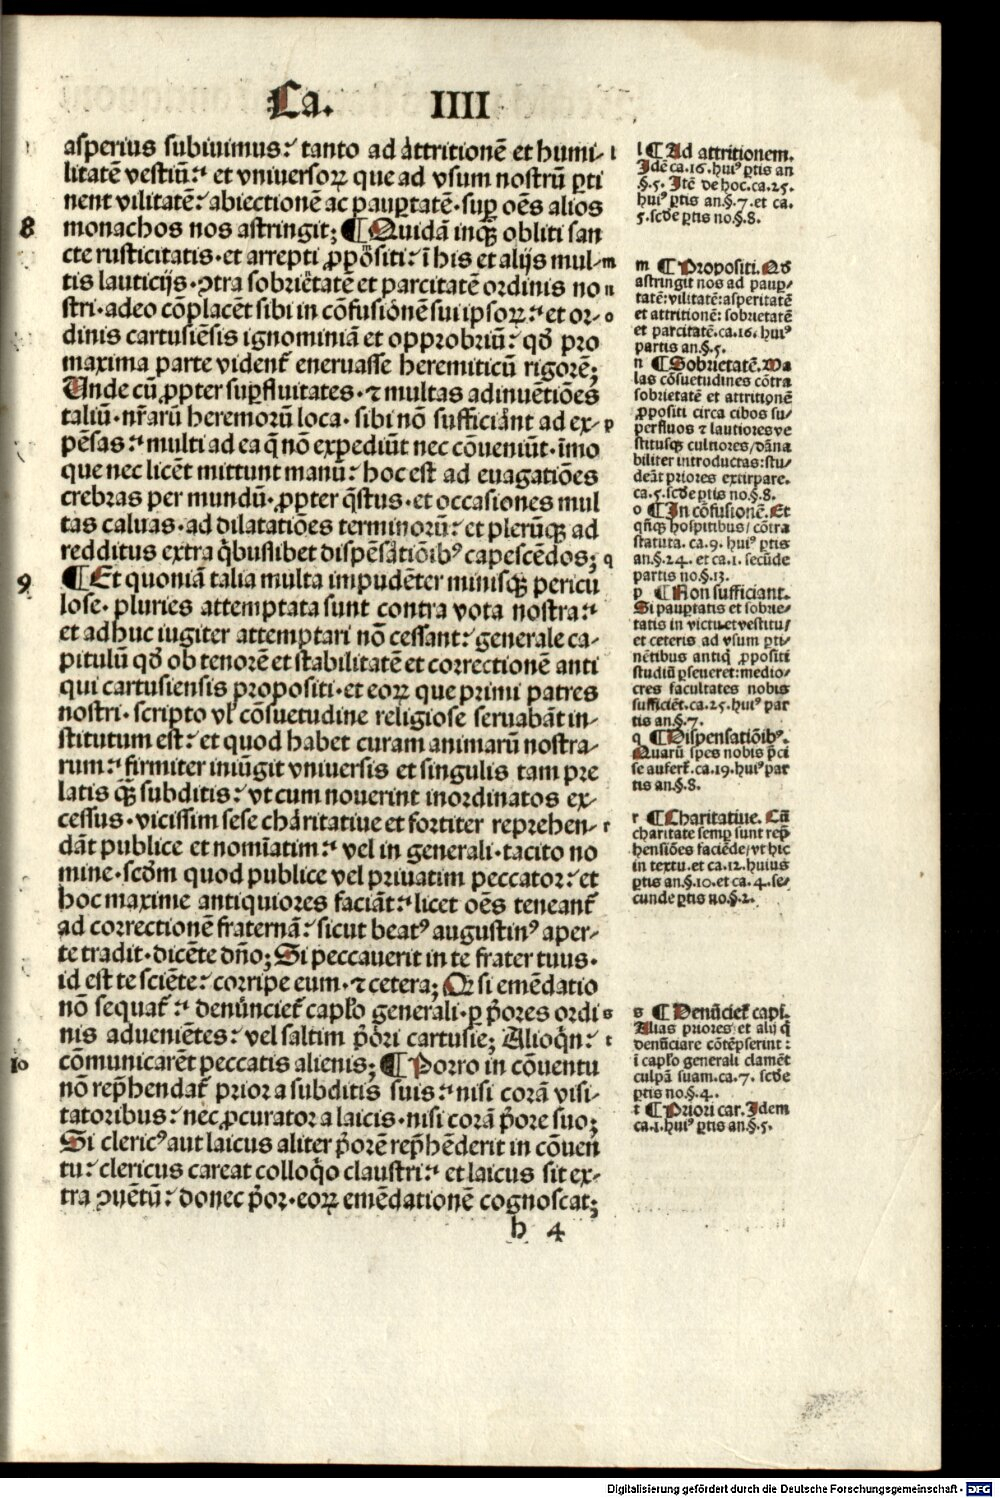 Ca. IIII
asperius subiuimus: tanto ad attritionē et humi- l
litatē vestiū: et vniuersoꝝ que ad vsum nostrū ꝑti
nent vilitatē: abiectionē ac pauꝑtatē. suꝑ oēs alios
8 monachos nos astringit; ¶ Quidā inqꝫ obliti san
cte rusticitatis. et arrepti ꝓpositi: ī his et alijs mul- m
tis lauticijs. ꝯtra sobrietatē et parcitatē ordinis no n
stri. adeo cōplacēt sibi in cōfusionē sui ipsoꝝ: et or- o
dinis cartusiēsis ignominiā et opprobriū: qđ pro
maxima parte vident᷑ eneruasse heremiticū rigorē;
Unde cū ꝓpter suꝑfluitates. ⁊ multas adinuētiōes
taliū. nr̄arū heremorū loca. sibi nō sufficiant ad ex- p
pēsas: multi ad ea q̄ nō expediūt nec cōueniūt. īmo
que nec licēt mittunt manū: hoc est ad euagatiōes
crebras per mundū. ꝓpter q̄stus. et occasiones mul
tas caluas. ad dilatatiōes terminorū: et plerūqꝫ ad
redditus extra q̄buslibet dispēsatiōibꝰ capescēdos; q
9 ¶ Et quoniā talia multa impudēter minusqꝫ pericu
lose. pluries attemptata sunt contra vota nostra:
et adhuc iugiter attemptari nō cessant: generale ca-
pitulū qđ ob tenorē et stabilitatē et correctionē anti
qui cartusiensis propositi. et eoꝝ que primi patres
nostri. scripto vl̓ cōsuetudine religiose seruabāt in-
stitutum est: et quod habet curam animarū nostra-
rum: firmiter iniūgit vniuersis et singulis tam pre
latis qꝫ̄ subditis: vt cum nouerint inordinatos ex-
cessus. vicissim sese charitatiue et fortiter reprehen- r
dāt publice et nomīatim: vel in generali. tacito no
mine. scđm quod publice vel priuatim peccator: et
hoc maxime antiquiores faciāt: licet oēs teneant᷑
ad correctionē fraternā: sicut beatꝰ augustinꝰ aper-
te tradit. dicēte dn̄o; Si peccauerit in te frater tuus.
id est te sciēte: corripe eum. ⁊ cetera; Qr̄ si emēdatio
nō sequat᷑: denūnciet᷑ caplo̓ generali. ꝑ p̄ores ordi s
nis aduenientes: vel saltim p̄ori cartusie; Alioqn̄: t
10 cōmunicarēt peccatis alienis; ¶ Porro in cōuentu
nō rep̄hendat᷑ prior a subditis suis: nisi corā visi-
tatoribus: nec ꝓcurator a laicis. nisi corā p̄ore suo;
Si clericꝰ aut laicus aliter p̄orē rep̄hēderit in cōuen
tu: clericus careat colloq̄o claustri: et laicus sit ex-
tra ꝯuētū: donec p̄or. eoꝝ emēdationē cognoscat;
h 4
l ¶ Ad attritionem.
Idē ca.16. huiꝰ ꝑtis an
§.5. Itē de hoc.ca.25.
huiꝰ ꝑtis an.§.7. et ca.
5. scđe ꝑtis no.§.8.
m ¶ Propositi. Qđ
astringit nos ad pauꝑ-
tatē: vilitatē: asperitatē
et attritionē: sobrietatē
et parcitatē.ca.16. huiꝰ
partis an.§.5.
n ¶ Sobrietatē. Ma
las cōsuetudines cōtra
sobrietatē et attritionē
ꝓpositi circa cibos su-
perfluos ⁊ lautiores ve
stitusqꝫ / dāna
biliter introductas: stu-
deāt priores extirpare.
ca.5. scđe ꝑtis no.§.8.
o ¶ In cōfusionē. Et
qn̄qꝫ hospitibus / cōtra
statuta. ca.9. huiꝰ ꝑtis
an.§.24. et ca.1. secūde
partis no.§.13.
p ¶ Non sufficiant.
Si pauꝑtatis et sobrie-
tatis in victu et vestitu /
et ceteris ad vsum ꝑti-
nētibus antiq̄ ꝓpositi
studiū ꝑseueret: medio-
cres facultates nobis
sufficiēt. ca.25. huiꝰ par
tis an.§.7.
q ¶ Dispensatiōibꝰ.
Quarū spes nobis p̄ci
se aufert᷑. ca.19. huiꝰ par
tis an.§.8.
r ¶ Charitatiue. Cū
charitate semꝑ sunt rep̄
hensiōes faciēde / vt hic
in textu. et ca.12. huius
ꝑtis an.§.10. et ca.4. se-
cunde ꝑtis no.§.2.
s ¶ Denūciet᷑ capl̓.
Alias priores et alij q̄
denūciare cōtēpserint:
ī caplo̓ generali clamēt
culpā suam. ca.7. scđe
ꝑtis no.§.4.
t ¶ Priori car. Idem
ca.1. huiꝰ ꝑtis an.§.5.
Digitalisierung gefördert durch die Deutsche Forschungsgemeinschaft - DFG